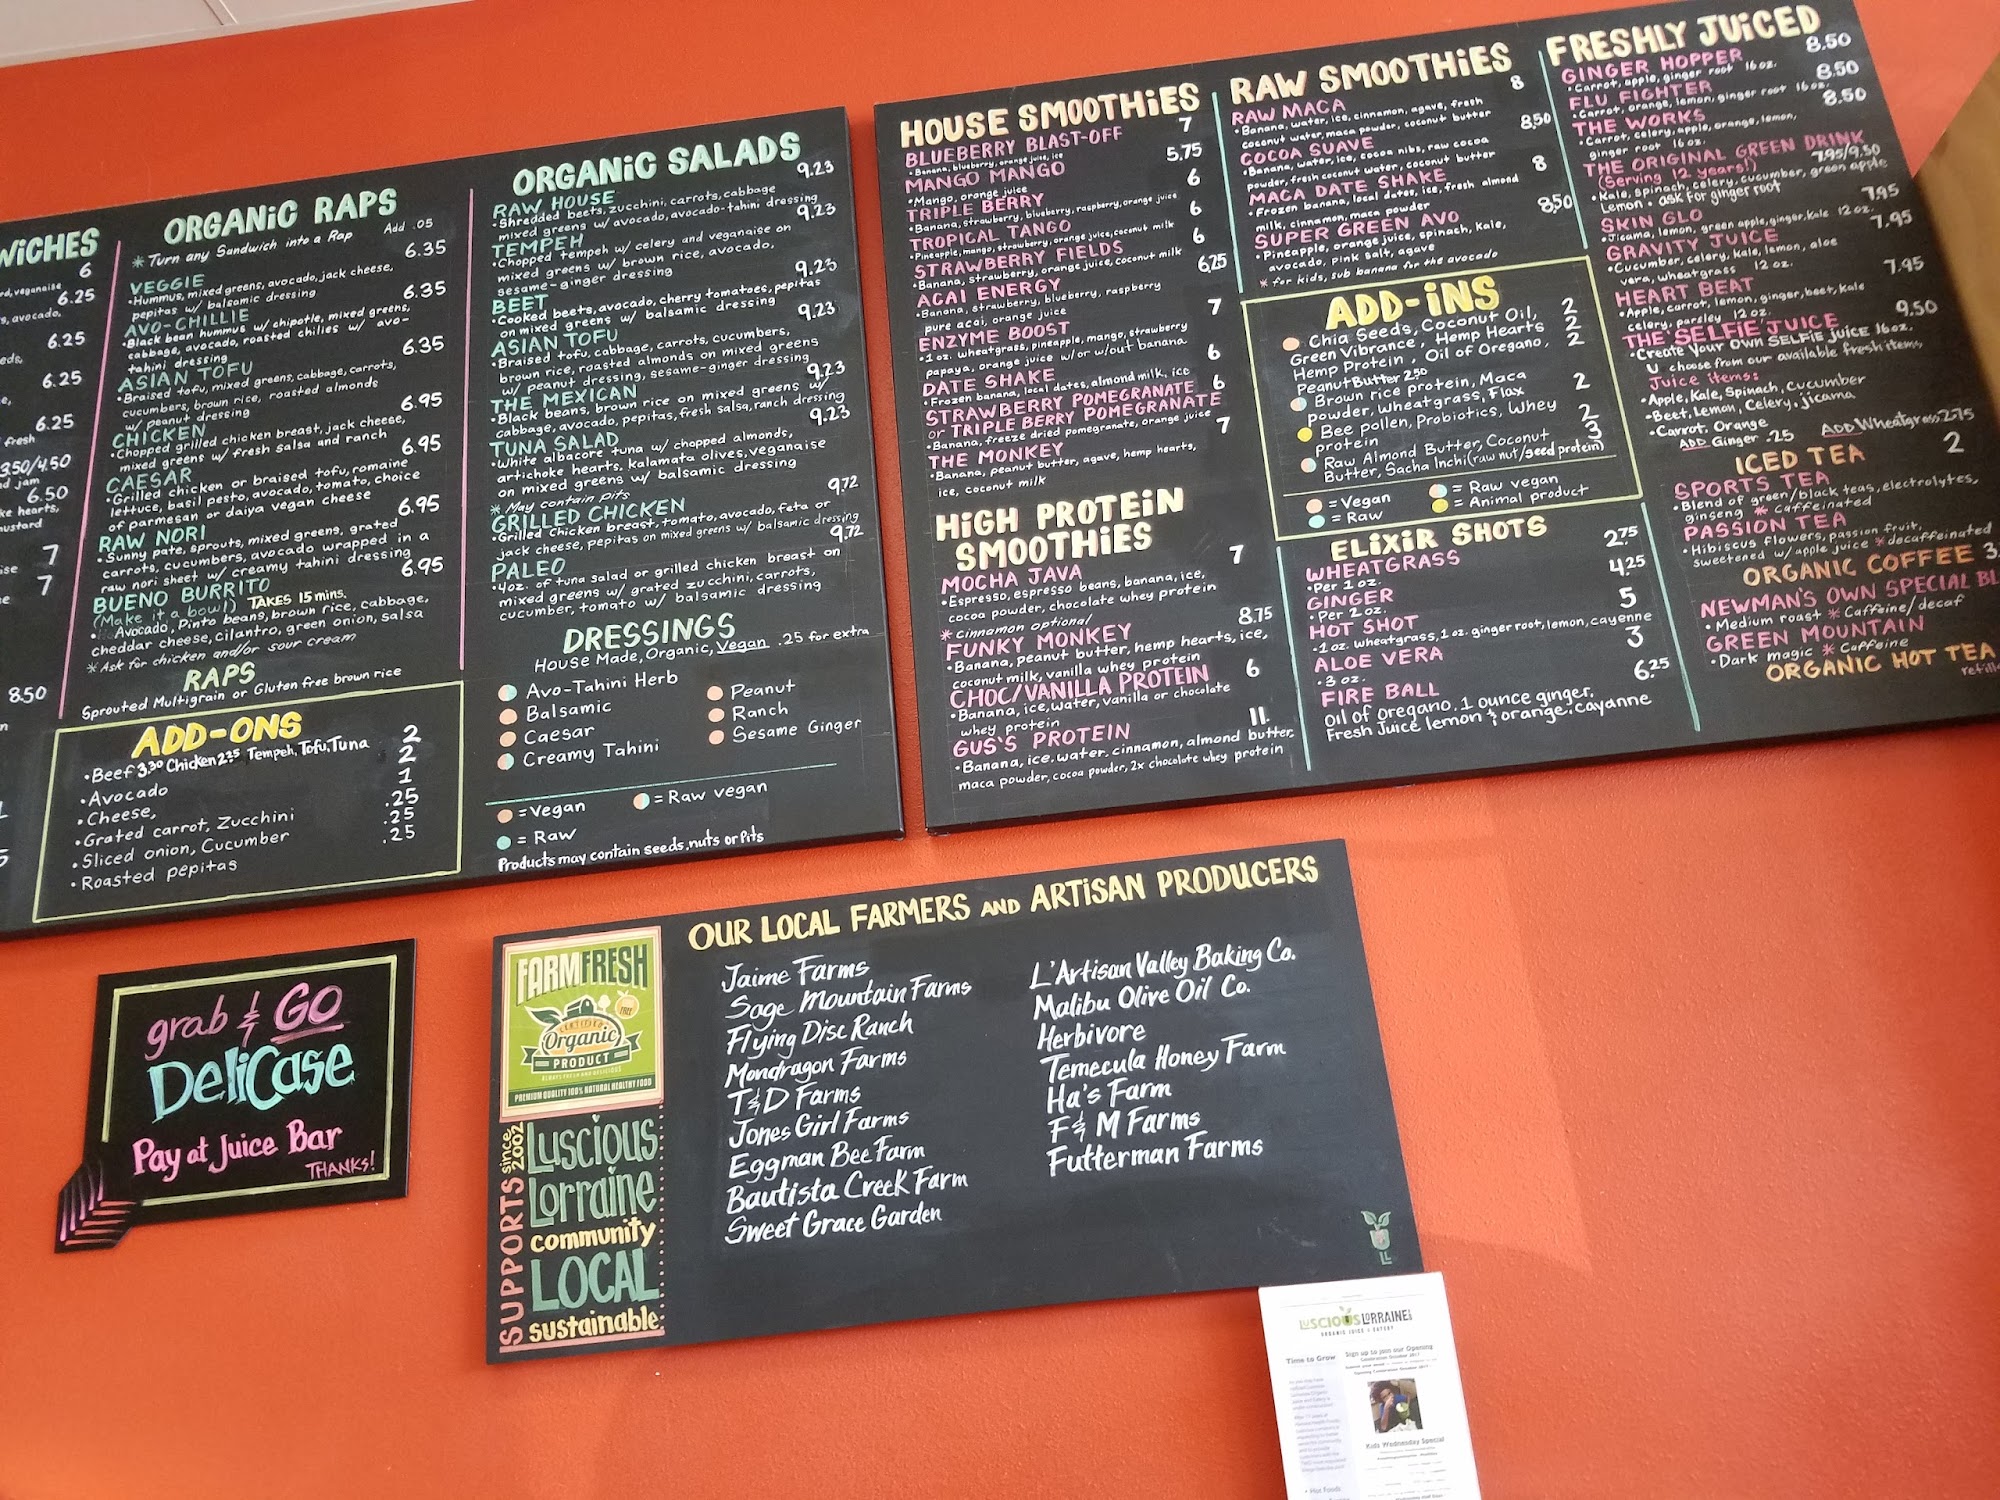 WICHES
6
rd, veganaise
6.25
s, avocado,
6.25
eds,
6.25
6.25
fresh
3.50/4.50
d jam
6.50
ke hearts,
mustard
7
7
8.50
ORGANiC RAPS
* Turn any Sandwich into a Rap Add .05
VEGGIE 6.35
• Hummus, mixed greens, avocado, jack cheese,
pepitas w/ balsamic dressing
AVO-CHILLIE 6.35
• Black bean hummus w/ chipotle, mixed greens,
cabbage, avocado, roasted chilies w/ avo-
tahini dressing
ASIAN TOFU 6.35
• Braised tofu, mixed greens, cabbage, carrots,
cucumbers, brown rice, roasted almonds
w/ peanut dressing
CHICKEN 6.95
• Chopped grilled chicken breast, jack cheese,
mixed greens w/ fresh salsa and ranch
CAESAR 6.95
• Grilled chicken or braised tofu, romaine
lettuce, basil pesto, avocado, tomato, choice
of parmesan or daiya vegan cheese
RAW NORI 6.95
• Sunny pate, sprouts, mixed greens, grated
carrots, cucumbers, avocado wrapped in a
raw nori sheet w/ creamy tahini dressing
BUENO BURRITO 6.95
(Make it a bowl) TAKES 15 mins.
• Avocado, Pinto beans, brown rice, cabbage,
cheddar cheese, cilantro, green onion, salsa
* Ask for chicken and/or sour cream
RAPS
Sprouted Multigrain or Gluten free brown rice
ADD-ONS
• Beef 3.30 Chicken 2.35 Tempeh, Tofu, Tuna 2
• Avocado 2
• Cheese, 1
• Grated carrot, Zucchini .25
• Sliced onion, Cucumber .25
• Roasted pepitas .25
ORGANiC SALADS
RAW HOUSE 9.23
• Shredded beets, zucchini, carrots, cabbage
mixed greens w/ avocado, avocado-tahini dressing
TEMPEH 9.23
• Chopped tempeh w/ celery and veganaise on
mixed greens w/ brown rice, avocado,
sesame-ginger dressing
BEET 9.23
• Cooked beets, avocado, cherry tomatoes, pepitas
on mixed greens w/ balsamic dressing
ASIAN TOFU 9.23
• Braised tofu, cabbage, carrots, cucumbers,
brown rice, roasted almonds on mixed greens
w/ peanut dressing, sesame-ginger dressing
THE MEXICAN 9.23
• Black beans, brown rice on mixed greens w/
cabbage, avocado, pepitas, fresh salsa, ranch dressing
TUNA SALAD 9.23
• White albacore tuna w/ chopped almonds,
artichoke hearts, kalamata olives, veganaise
on mixed greens w/ balsamic dressing
* May contain pits
GRILLED CHICKEN 9.72
• Grilled Chicken breast, tomato, avocado, feta or
jack cheese, pepitas on mixed greens w/ balsamic dressing
PALEO 9.72
• 4oz. of tuna salad or grilled chicken breast on
mixed greens w/ grated zucchini, carrots,
cucumber, tomato w/ balsamic dressing
DRESSINGS
House Made, Organic, Vegan .25 for extra
Avo-Tahini Herb
Balsamic
Caesar
Creamy Tahini
Peanut
Ranch
Sesame Ginger
= Vegan
= Raw vegan
= Raw
Products may contain seeds, nuts or Pits
HOUSE SMOOTHiES
BLUEBERRY BLAST-OFF 7
• Banana, blueberry, orange juice, ice
MANGO MANGO 5.75
• Mango, orange juice
TRIPLE BERRY 6
• Banana, strawberry, blueberry, raspberry, orange juice
TROPICAL TANGO 6
• Pineapple, mango, strawberry, orange juice, coconut milk
STRAWBERRY FIELDS 6
• Banana, strawberry, orange juice, coconut milk
ACAI ENERGY 6.25
• Banana, strawberry, blueberry, raspberry
pure acai, orange juice
ENZYME BOOST 7
• 1 oz. wheatgrass, pineapple, mango, strawberry
papaya, orange juice w/ or w/out banana
DATE SHAKE 6
• Frozen banana, local dates, almond milk, ice
STRAWBERRY POMEGRANATE 6
or TRIPLE BERRY POMEGRANATE
• Banana, freeze dried pomegranate, orange juice
THE MONKEY 7
• Banana, peanut butter, agave, hemp hearts,
ice, coconut milk
HiGH PROTEiN
SMOOTHiES
MOCHA JAVA 7
• Espresso, espresso beans, banana, ice,
cocoa powder, chocolate whey protein
* cinnamon optional
FUNKY MONKEY 8.75
• Banana, peanut butter, hemp hearts, ice,
coconut milk, vanilla whey protein
CHOC/VANILLA PROTEIN 6
• Banana, ice, water, vanilla or chocolate
whey protein
GUS'S PROTEIN 11.
• Banana, ice, water, cinnamon, almond butter,
maca powder, cocoa powder, 2x chocolate whey protein
RAW SMOOTHiES
RAW MACA 8
• Banana, water, ice, cinnamon, agave, fresh
coconut water, maca powder, coconut butter
COCOA SUAVE 8.50
• Banana, water, ice, cocoa nibs, raw cocoa
powder, fresh coconut water, coconut butter
MACA DATE SHAKE 8
• Frozen banana, local dates, ice, fresh almond
milk, cinnamon, maca powder
SUPER GREEN AVO 8.50
• Pineapple, orange juice, spinach, kale,
avocado, pink salt, agave
* for kids, sub banana for the avocado
ADD-iNS
Chia Seeds, Coconut Oil, 2
Green Vibrance, Hemp Hearts 2
Hemp Protein, Oil of Oregano, 2
Peanut Butter 2.50
Brown rice protein, Maca 2
powder, wheatgrass, Flax
Bee pollen, Probiotics, Whey 2
protein
Raw Almond Butter, Coconut 3
Butter, Sacha Inchi (raw nut/seed protein)
= Vegan
= Raw vegan
= Raw
= Animal product
ELiXiR SHOTS
WHEATGRASS 2.75
• Per 1 oz.
GINGER 4.25
• Per 2 oz.
HOT SHOT 5
• 1 oz. wheatgrass, 1 oz. ginger root, lemon, cayenne
ALOE VERA 3
• 3 oz.
FIRE BALL 6.25
Oil of oregano. 1 ounce ginger.
Fresh Juice lemon & orange, cayanne
FRESHLY JUiCED
GINGER HOPPER 8.50
• Carrot, apple, ginger root 16 oz.
FLU FIGHTER 8.50
• Carrot, orange, lemon, ginger root 16 oz.
THE WORKS 8.50
• Carrot, celery, apple, orange, lemon,
ginger root 16 oz.
THE ORIGINAL GREEN DRINK
(Serving 12 years!) 7.95/9.50
• Kale, spinach, celery, cucumber, green apple
Lemon • ask for ginger root
SKIN GLO 7.95
• Jicama, lemon, green apple, ginger, kale 12 oz.
GRAVITY JUICE 7.95
• Cucumber, celery, kale, lemon, aloe
vera, wheatgrass 12 oz.
HEART BEAT 7.95
• Apple, carrot, lemon, ginger, beet, kale
celery, parsley 12 oz.
THE "SELFiE" JUICE 9.50
• Create Your OWN SELFie juice 16oz.
U choose from our available fresh items
Juice items:
• Apple, Kale, Spinach, cucumber
• Beet, Lemon, Celery, jicama
• Carrot, Orange
ADD Ginger .25 ADD Wheatgrass 2.75
ICED TEA
SPORTS TEA 2
• Blend of green/black teas, electrolytes,
ginseng * caffeinated
PASSION TEA
• Hibiscus flowers, passion fruit,
sweetened w/ apple juice * decaffeinated
ORGANIC COFFEE 3.
NEWMAN'S OWN SPECIAL BL
• Medium roast * Caffeine/decaf
GREEN MOUNTAIN
• Dark magic * Caffeine
ORGANIC HOT TEA
refills
grab & GO
DeliCase
Pay at Juice Bar
THANKS!
FARMFRESH
FREE
CERTIFIED
Organic
PRODUCT
ALWAYS FRESH AND DELICIOUS
PREMIUM QUALITY 100% NATURAL HEALTHY FOOD
SUPPORTS since 2002
Luscious
Lorraine
community
LOCAL
sustainable
OUR LOCAL FARMERS AND ARTiSAN PRODUCERS
Jaime Farms
Sage Mountain Farms
Flying Disc Ranch
Mondragon Farms
T&D Farms
Jones Girl Farms
Eggman Bee Farm
Bautista Creek Farm
Sweet Grace Garden
L'Artisan Valley Baking Co.
Malibu Olive Oil Co.
Herbivore
Temecula Honey Farm
Ha's Farm
F & M Farms
Futterman Farms
LL
LUSCIOUS LORRAINE
ORGANIC JUICE & EATERY
Time to Grow
Sign up to join our Opening
Celebration October 2017
Kids Wednesday Special
• Hot Foods